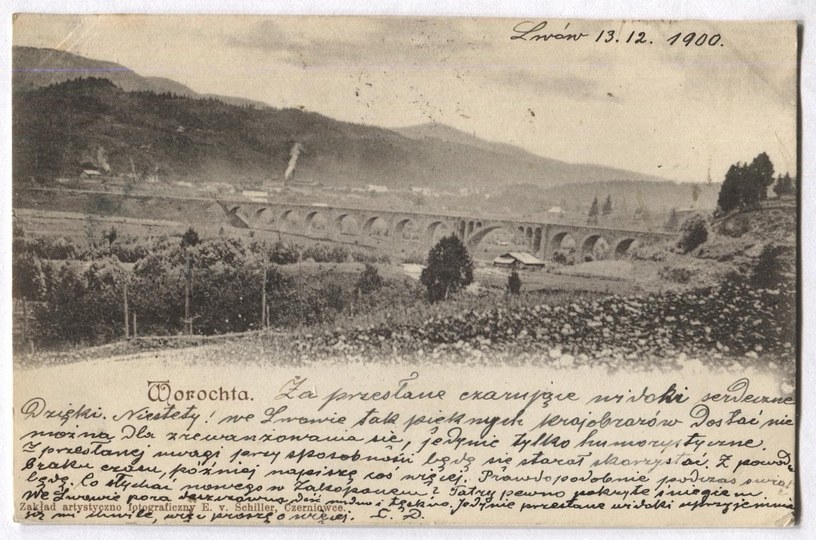 Lwów 13.12. 1900.
Worochta. Za przesłane czarujące widoki serdeczne
Dzięki. Niestety! we Lwowie tak pięknych krajobrazów Dostać nie
można Dla zrewanżowania się, jedynie tylko humorystyczne.
Z przesłanej uwagi przy sposobności będę się starał skorzystać. Z powodu
braku czasu, później napiszę coś więcej. Prawdopodobnie podczas
będę. Co słychać nowego w Zakopanem? Tatry pewno pokryte śniegiem.
We Lwowie pora deszczowa, dziś nudno i tęskno. Jedynie przesłane widoki uprzyjemniają
Zakład artystyczno fotograficzny E. v. Schiller, Czerniowce.
mi chwile, więc proszę o więcej. L. D.